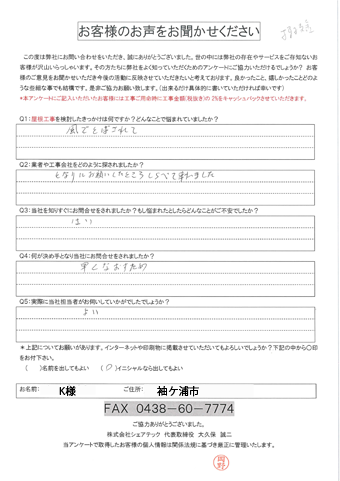 お客様のお声をお聞かせください
この度は弊社にお問い合わせをいただき、誠にありがとうございました。世の中には弊社の存在やサービスをご存知ないお
客様が沢山いらっしゃいます。その方たちに弊社をよく知っていただくためのアンケートにご協力いただけるでしょうか？ お客
様のご意見をお聞かせいただき今後の活動に反映させていただきたいと考えております。良かったこと、嬉しかったことどのよ
うな些細な事でも結構です。是非ご協力お願い致します。（出来るだけ具体的に書いていただければ幸いです）
*本アンケートにご記入いただいたお客様には工事ご用命時に工事金額(税抜き)の2%をキャッシュバックさせていただきます。
Q1：屋根工事を検討したきっかけは何ですか？どんなことで悩まれていましたか？
風でとばされて
Q2：業者や工事会社をどのように探されましたか？
となりにお願いしたところしらべて来ました
Q3：当社を知りすぐにお問合せをされましたか？もし悩まれたとしたらどんなことがご不安でしたか？
はい
Q4：何が決め手となり当社にお問合せをされましたか？
早くなおすため
Q5：実際に当社担当者がお伺いしていかがでしたでしょうか？
よい
＊上記についてお願いがあります。インターネットや印刷物に掲載させていただいてもよろしいでしょうか？下記の中から〇印
をお付下さい。
（　）名前を出してもよい　（〇）イニシャルなら出してもよい
お名前： K様 ご住所： 袖ケ浦市
FAX 0438-60-7774
ご協力ありがとうございました。
株式会社シェアテック 代表取締役 大久保 誠二
当アンケートで取得したお客様の個人情報は関係法規に基づき厳正に管理いたします。